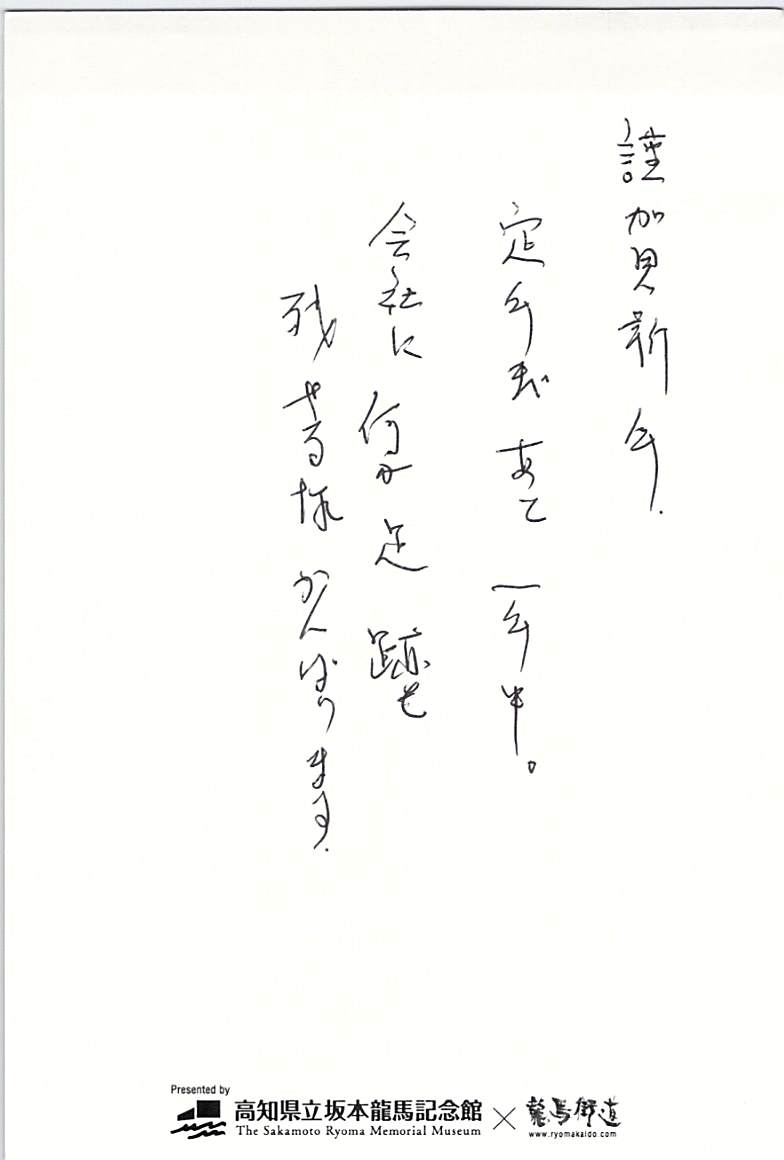 謹加賀新年.
定年まであと一年半。
会社に何か足跡を
残せる様がんばります.
Presented by
高知県立坂本龍馬記念館
The Sakamoto Ryoma Memorial Museum
×
龍馬街道
www.ryomakaido.com